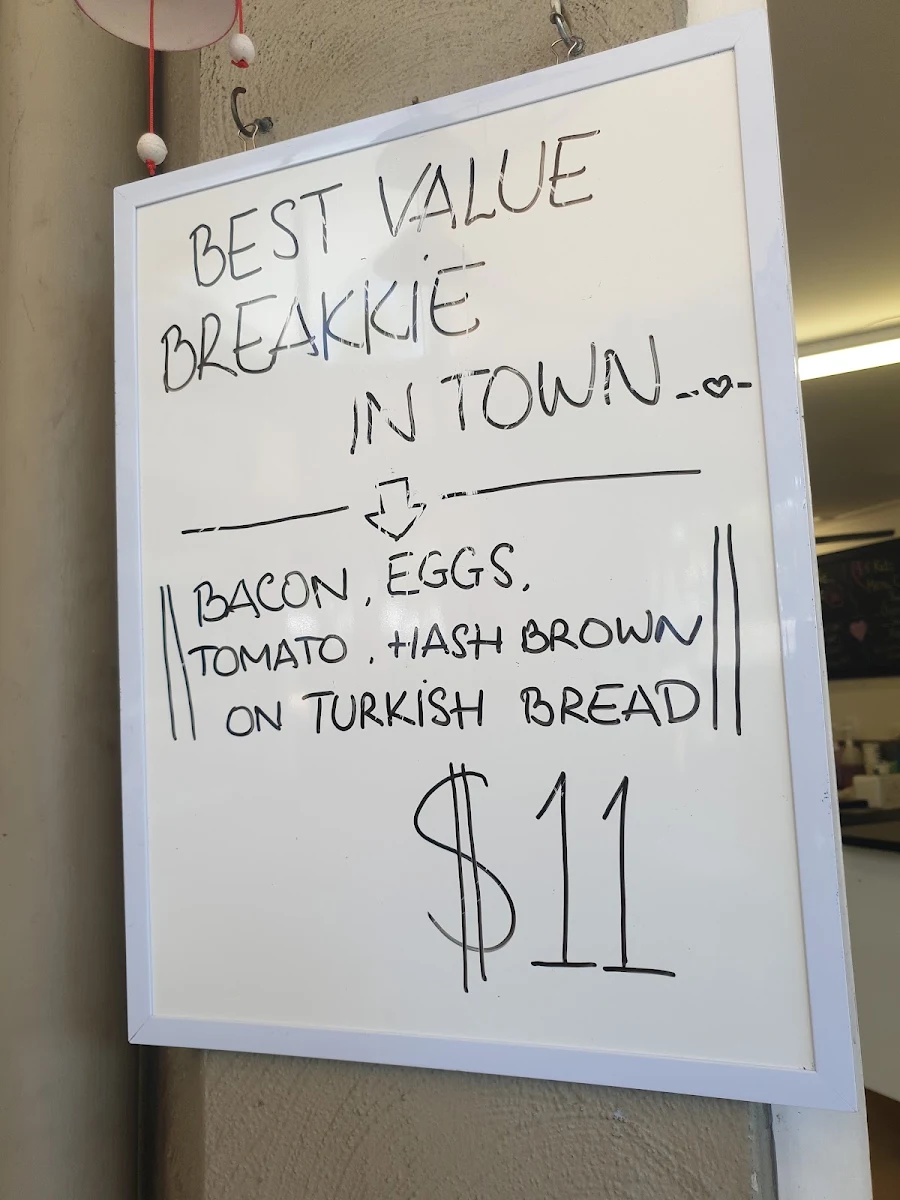 BEST VALUE
BREAKKIE
IN TOWN
BACON, EGGS,
TOMATO, HASH BROWN
ON TURKISH BREAD
$11